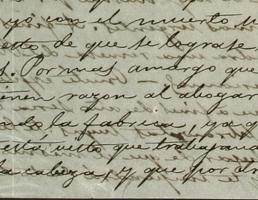 yó con el muerto
esto de que se lograse
Por mas amargo que
ienen razon al abogar
ndo la fabrica, ya q
está visto que trabajand
la cabeza, y que por